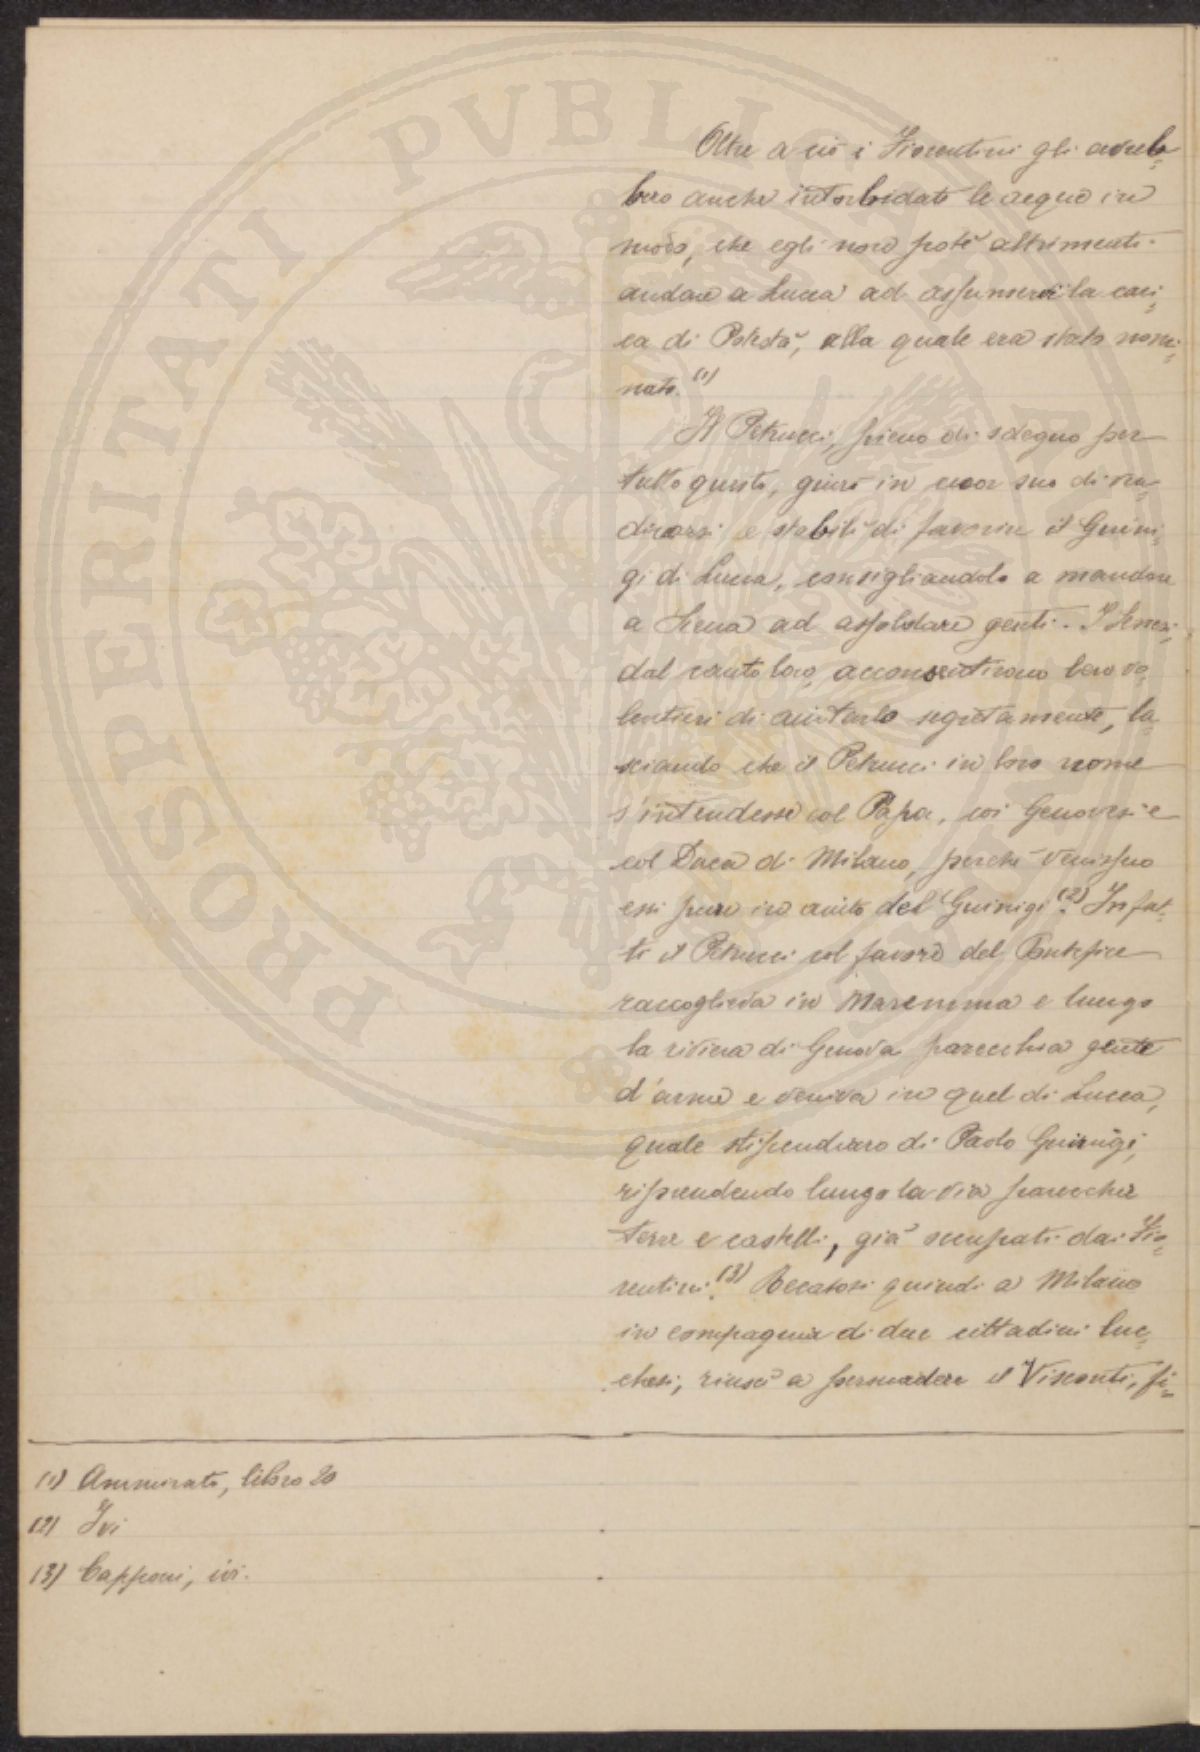 Oltre a ciò i Fiorentini gli avreb=
bero anche intorbidato le acque in
modo, che egli non potè altrimenti
andare a Lucca ad assumervi la cari=
ca di Potestà, alla quale era stato nomi=
nato. (1)
Il Petrucci, pieno di sdegno per
tutto questo, giurò in cuor suo di ven=
dicarsi e stabilì di favorire il Guini=
gi di Lucca, consigliandolo a mandare
a Siena ad assoldare genti. I Senesi,
dal canto loro, acconsentirono ben vo=
lentieri di aiutarlo segretamente, la=
sciando che il Petrucci in loro nome
s'intendesse col Papa, coi Genovesi e
col Duca di Milano, perchè venissero
essi pure in aiuto del Guinigi. (2) Infat=
ti il Petrucci col favore del Pontefice
raccoglieva in Maremma e lungo
la riviera di Genova parecchia gente
d'arme e veniva in quel di Lucca,
quale stipendiaro di Paolo Guinigi,
riprendendo lungo la via parecchie
terre e castelli, già occupati dai Fio=
rentini. (3) Recatosi quindi a Milano
in compagnia di due cittadini luc=
chesi, riuscì a persuadere il Visconti, fi=
(1) Ammirato, libro 20
(2) Ivi
(3) Capponi, ivi.
PROSPERITATI PVBLICAE